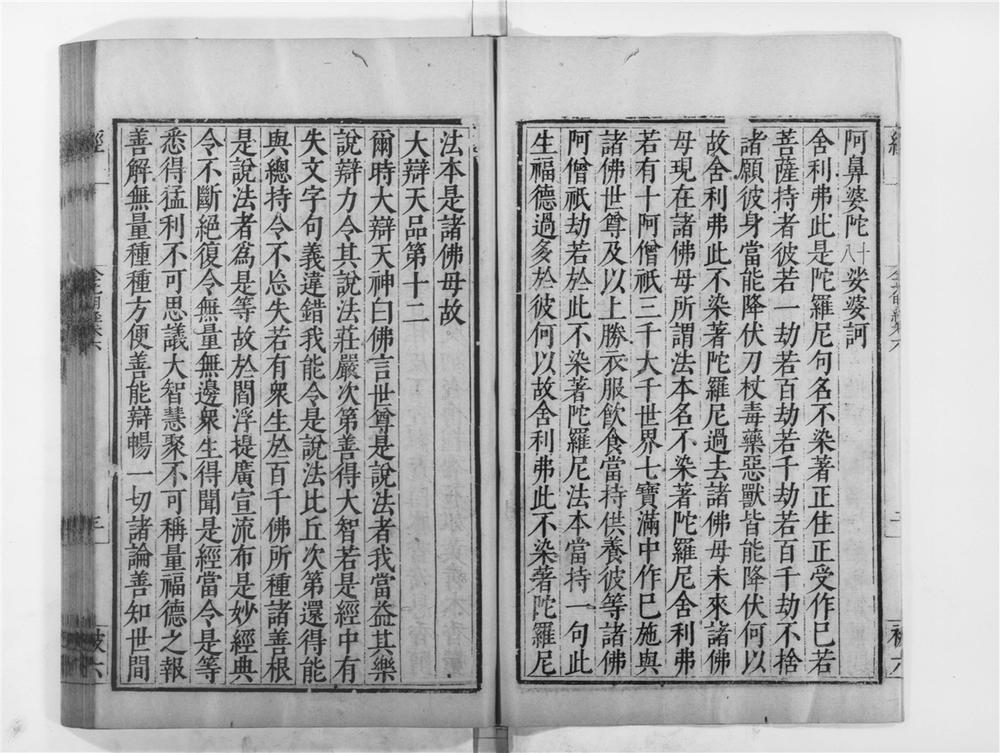 阿鼻婆陀十八娑婆訶
舍利弗此是陀羅尼句名不染著正住正受作巳若
菩薩持者彼若一劫若百劫若千劫若百千劫不捨
諸願彼身當能降伏刀杖毒藥惡獸皆能降伏何以
故舍利弗此不染著陀羅尼過去諸佛母未來諸佛
母現在諸佛母所謂法本名不染著陀羅尼舍利弗
若有十阿僧祇三千大千世界七寶滿中作巳施與
諸佛世尊及以上勝衣服飲食當持供養彼等諸佛
阿僧祇劫若於此不染著陀羅尼法本當持一句此
生福德過多於彼何以故舍利弗此不染著陀羅尼
法本是諸佛母故
大辯天品第十二
爾時大辯天神白佛言世尊是說法者我當益其樂
說辯力令其說法莊嚴次第善得大智若是經中有
失文字句義違錯我能令是說法比丘次第還得能
與總持令不忘失若有衆生於百千佛所種諸善根
是說法者為是等故於閻浮提廣宣流布是妙經典
令不斷絕復令無量無邊衆生得聞是經當令是等
悉得猛利不可思議大智慧聚不可稱量福德之報
善解無量種種方便善能辯暢一切諸論善知世間